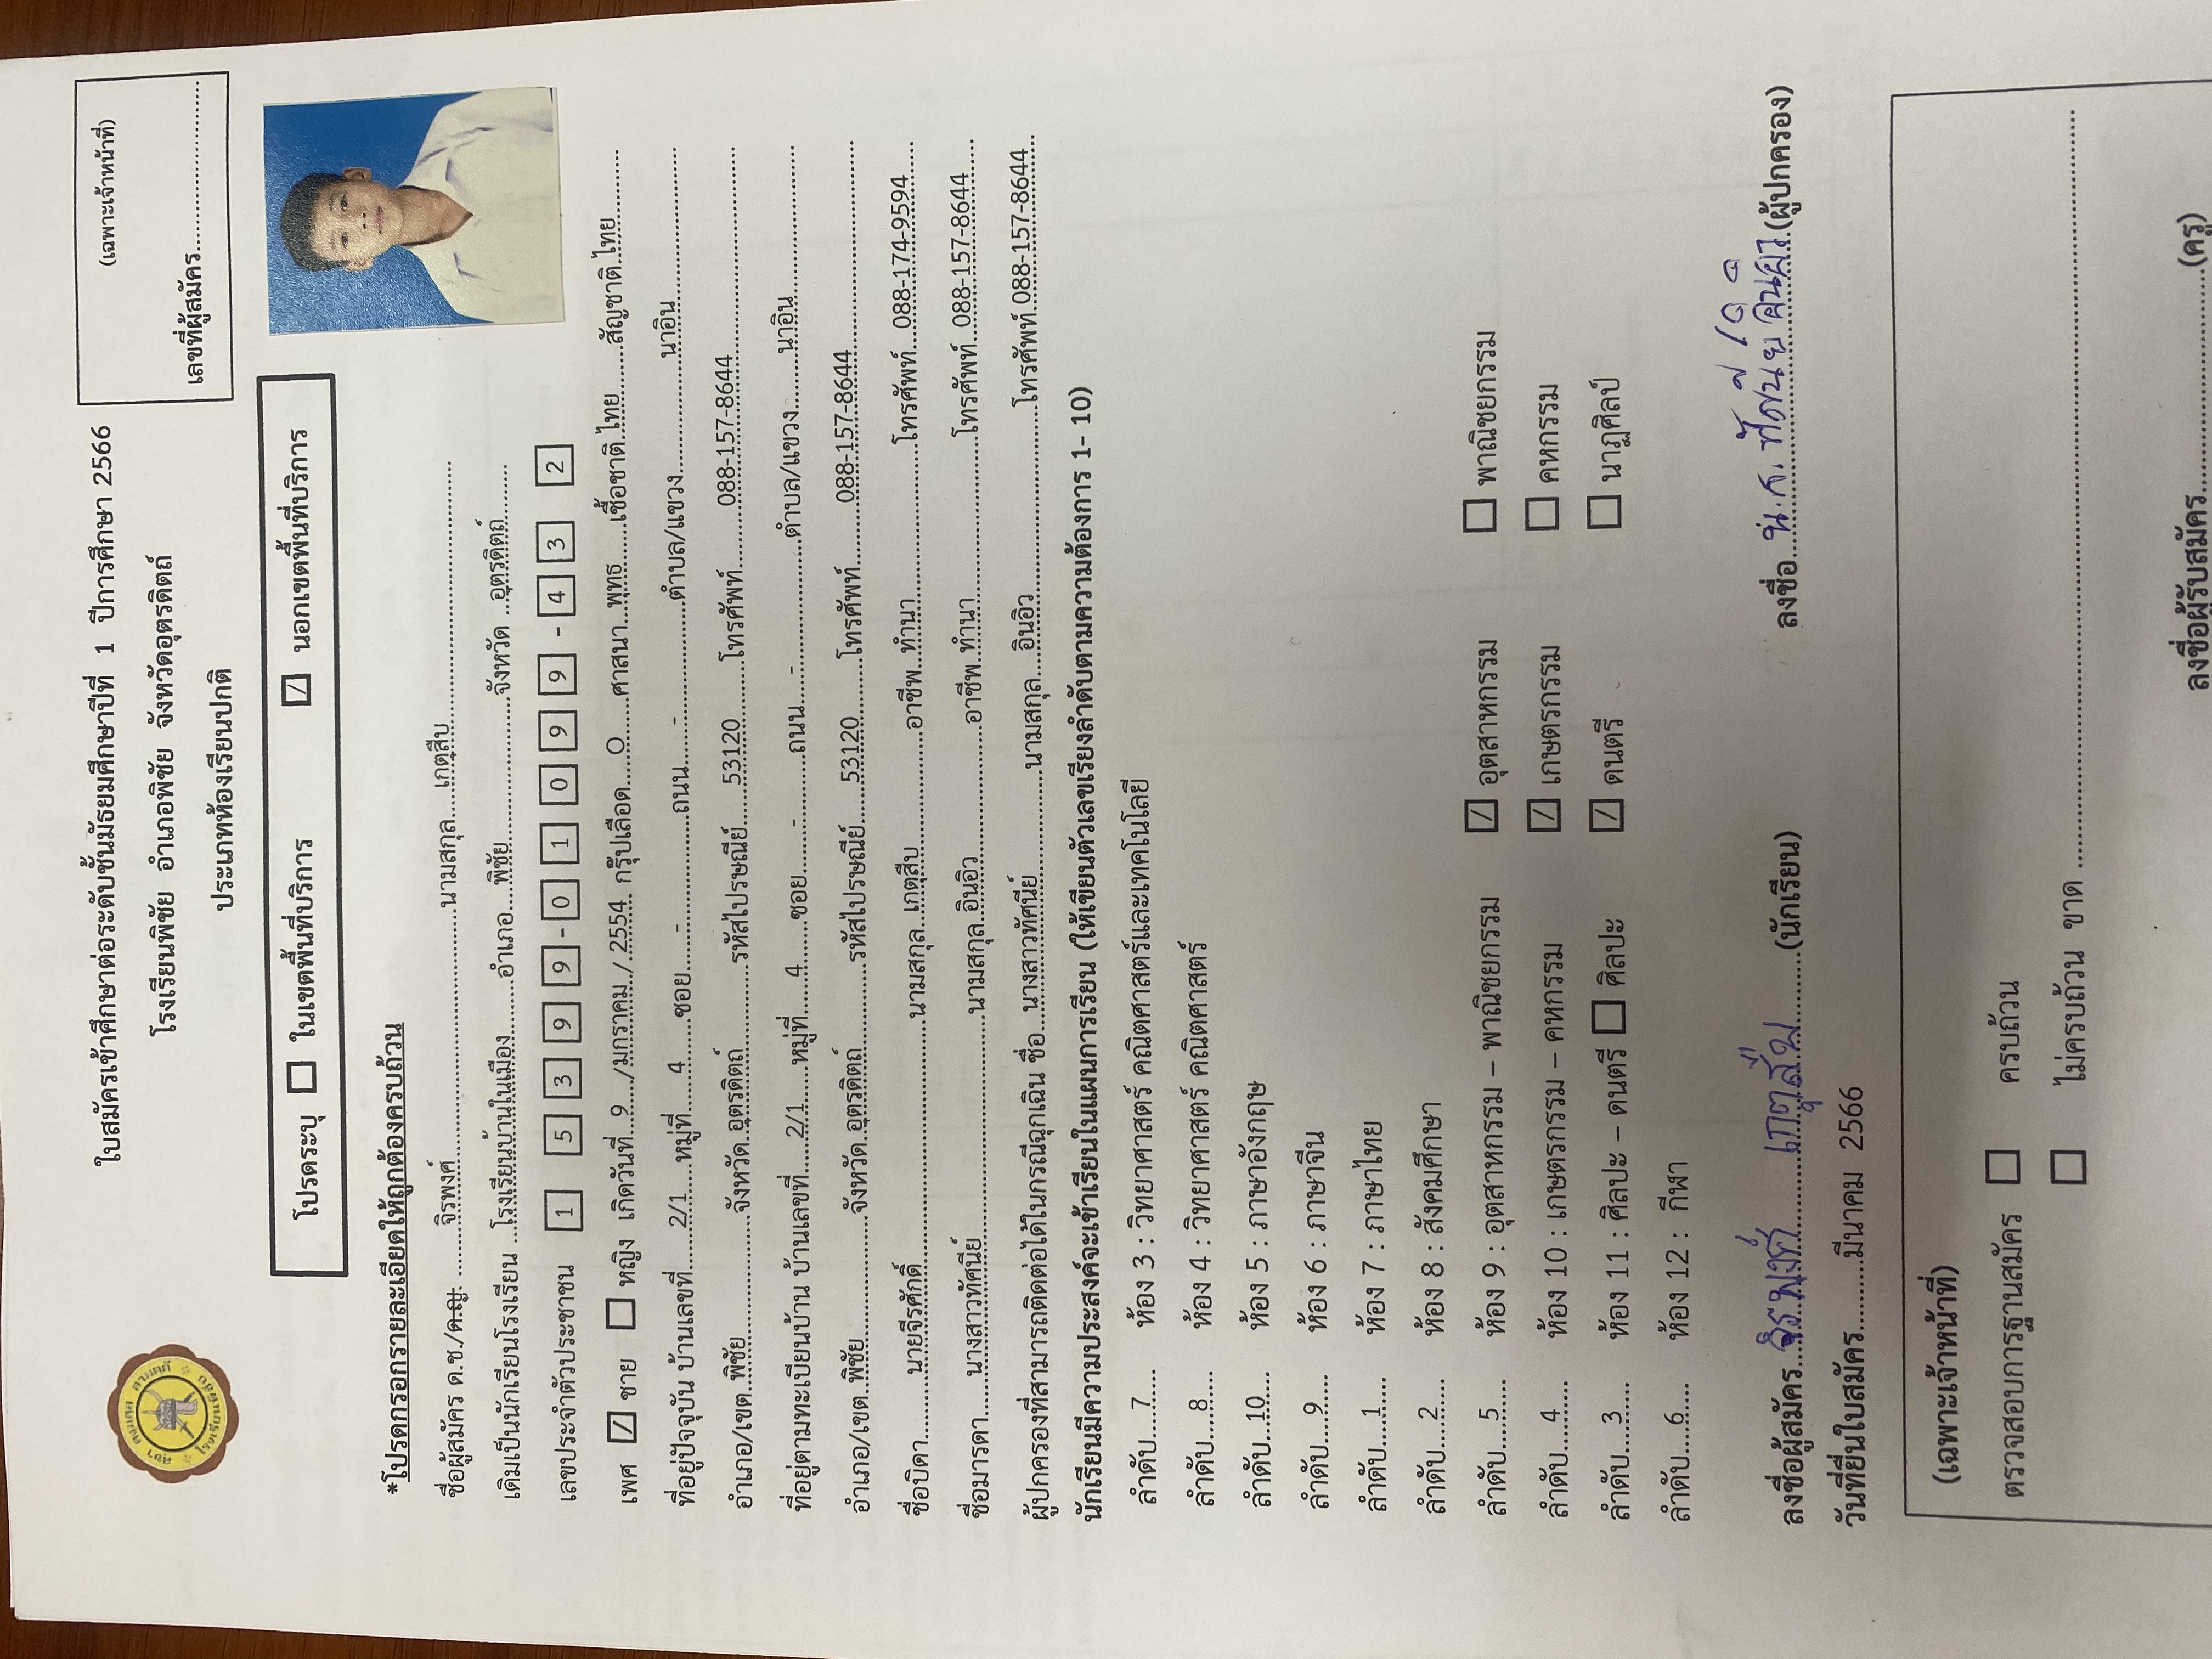 (เฉพาะเจ้าหน้าที่)
เลขที่ผู้สมัคร........................
ใบสมัครเข้าศึกษาต่อระดับชั้นมัธยมศึกษาปีที่ 1 ปีการศึกษา 2566
โรงเรียนพิชัย อำเภอพิชัย จังหวัดอุตรดิตถ์
ประเภทห้องเรียนปกติ
โปรดระบุ ☐ ในเขตพื้นที่บริการ ☑ นอกเขตพื้นที่บริการ
*โปรดกรอกรายละเอียดให้ถูกต้องครบถ้วน
ชื่อผู้สมัคร ด.ช./ด.ญ. ........จิรพงศ์........นามสกุล....เกตุสืบ........
เดิมเป็นนักเรียนโรงเรียน ...โรงเรียนบ้านในเมือง........อำเภอ....พิชัย........จังหวัด ...อุตรดิตถ์........
เลขประจำตัวประชาชน 1 5 3 9 9 - 0 1 0 9 9 - 4 3 2
เพศ ☑ ชาย ☐ หญิง เกิดวันที่...9..../มกราคม./.2554. กรุ๊ปเลือด....O......ศาสนา...พุทธ......เชื้อชาติ.ไทย.......สัญชาติ.ไทย........
ที่อยู่ปัจจุบัน บ้านเลขที่......2/1......หมู่ที่.....4......ซอย.....-..........ถนน......-..........ตำบล/แขวง............นาอิน............
อำเภอ/เขต..พิชัย............จังหวัด..อุตรดิตถ์............รหัสไปรษณีย์.....53120........โทรศัพท์........088-157-8644............
ที่อยู่ตามทะเบียนบ้าน บ้านเลขที่.....2/1.....หมู่ที่.....4......ซอย......-........ถนน......-............ตำบล/แขวง........นาอิน............
อำเภอ/เขต..พิชัย............จังหวัด..อุตรดิตถ์............รหัสไปรษณีย์.....53120........โทรศัพท์........088-157-8644............
ชื่อบิดา........นายจีรศักดิ์............นามสกุล..เกตุสืบ............อาชีพ..ทำนา............โทรศัพท์...088-174-9594....
ชื่อมารดา......นางสาวทัศนีย์............นามสกุล.อินอิว............อาชีพ..ทำนา............โทรศัพท์..088-157-8644....
ผู้ปกครองที่สามารถติดต่อได้ในกรณีฉุกเฉิน ชื่อ....นางสาวทัศนีย์............นามสกุล....อินอิว............โทรศัพท์.088-157-8644..
นักเรียนมีความประสงค์จะเข้าเรียนในแผนการเรียน (ให้เขียนตัวเลขเรียงลำดับตามความต้องการ 1- 10)
ลำดับ....7..... ห้อง 3 : วิทยาศาสตร์ คณิตศาสตร์และเทคโนโลยี
ลำดับ....8..... ห้อง 4 : วิทยาศาสตร์ คณิตศาสตร์
ลำดับ....10.... ห้อง 5 : ภาษาอังกฤษ
ลำดับ....9..... ห้อง 6 : ภาษาจีน
ลำดับ....1..... ห้อง 7 : ภาษาไทย
ลำดับ....2..... ห้อง 8 : สังคมศึกษา
ลำดับ....5..... ห้อง 9 : อุตสาหกรรม – พาณิชยกรรม ☑ อุตสาหกรรม ☐ พาณิชยกรรม
ลำดับ....4..... ห้อง 10 : เกษตรกรรม – คหกรรม ☑ เกษตรกรรม ☐ คหกรรม
ลำดับ....3..... ห้อง 11 : ศิลปะ – ดนตรี ☐ ศิลปะ ☑ ดนตรี ☐ นาฏศิลป์
ลำดับ....6..... ห้อง 12 : กีฬา
ลงชื่อผู้สมัคร..จิรพงศ์......เกตุสืบ........(นักเรียน) ลงชื่อ...น.ส. ทัศนีย์ อินอิว.(ผู้ปกครอง)
วันที่ยื่นใบสมัคร..........มีนาคม 2566
(เฉพาะเจ้าหน้าที่)
ตรวจสอบการฐานสมัคร ☐ ครบถ้วน
☐ ไม่ครบถ้วน ขาด ........................................................
ลงชื่อผู้รับสมัคร..............................(ครู)